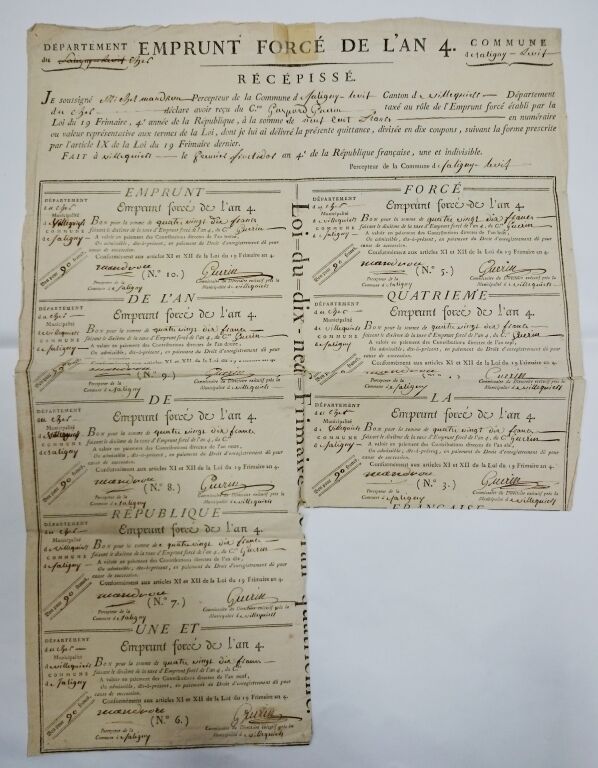 DÉPARTEMENT
du Cher
EMPRUNT FORCÉ DE L'AN 4.
COMMUNE
de Saligny-levif
RÉCÉPISSÉ.
JE soussigné Michel mandrou Percepteur de la Commune de Saligny-levif Canton de villequiers Département
du Cher déclare avoir reçu du C.en Gaspard Guérin taxé au rôle de l'Emprunt forcé établi par la
Loi du 19 Frimaire, 4.e année de la République, à la somme de neuf cent francs en numéraire
ou valeur représentative aux termes de la Loi, dont je lui ai délivré la présente quittance, divisée en dix coupons, suivant la forme prescrite
par l'article IX de la Loi du 19 Frimaire dernier.
FAIT à villequiers le an 4.e de la République française, une et indivisible.
Percepteur de la Commune de Saligny-levif
EMPRUNT
DÉPARTEMENT
du Cher
Municipalité
de villequiers
COMMUNE
de Saligny
Bon pour 90 francs.
Emprunt forcé de l'an 4.
BON pour la somme de quatre vingt dix francs
faisant le dixième de la taxe d'Emprunt forcé de l'an 4, du C.en Guérin
A valoir en paiement des Contributions directes de l'an
Ou admissible, dès-à-présent, en paiement de Droit d'enregistrement dû pour
cause de succession.
Conformément aux articles XI et XII de la Loi du 19 Frimaire an 4.
mandrou (N.o 10.) Guérin
Percepteur de la
Commune de Saligny
Commissaire du Directoire exécutif près la
Municipalité de villequiers
FORCÉ
DÉPARTEMENT
du Cher
Municipalité
de villequiers
COMMUNE
de Saligny
Bon pour 90 francs.
Emprunt forcé de l'an 4.
BON pour la somme de quatre vingt dix francs
faisant le dixième de la taxe d'Emprunt forcé de l'an 4, du C.en Guérin
A valoir en paiement des Contributions directes de l'an
Ou admissible, dès-à-présent, en paiement de Droit d'enregistrement dû pour
cause de succession.
Conformément aux articles XI et XII de la Loi du 19 Frimaire an 4.
mandrou (N.o 5.) Guérin
Percepteur de la
Commune de Saligny
Commissaire du Directoire exécutif près la
Municipalité de villequiers
Loi=du=dix-neuf=Frimaire
an quatrième
DE L'AN
DÉPARTEMENT
du Cher
Municipalité
de villequiers
COMMUNE
de Saligny
Emprunt forcé de l'an 4.
BON pour la somme de quatre vingt dix francs
faisant le dixième de la taxe d'Emprunt forcé de l'an 4, du C.en Guérin
A valoir en paiement des Contributions directes de l'an
Ou admissible, dès-à-présent, en paiement de Droit d'enregistrement dû pour
cause de succession.
XI et XII de la Loi du 19 Frimaire an 4.
(N.o 9.)
Percepteur de la
Commune de Saligny
Commissaire du Directoire exécutif près la
Municipalité de villequiers
QUATRIEME
DÉPARTEMENT
du Cher
Municipalité
de villequiers
COMMUNE
de Saligny
Emprunt forcé de l'an 4.
BON pour la somme de quatre vingt dix francs
faisant le dixième de la taxe d'Emprunt forcé de l'an 4, du C.en Guérin
A valoir en paiement des Contributions directes de l'an
Ou admissible, dès-à-présent, en paiement de Droit d'enregistrement dû pour
cause de succession.
Percepteur de la
Commune de Saligny
Commissaire du Directoire exécutif près la
Municipalité de villequiers
DE
DÉPARTEMENT
du Cher
Municipalité
de villequiers
COMMUNE
de Saligny
Bon pour 90 francs.
Emprunt forcé de l'an 4.
BON pour la somme de quatre vingt dix francs
faisant le dixième de la taxe d'Emprunt forcé de l'an 4, du C.en Guérin
A valoir en paiement des Contributions directes de l'an
Ou admissible, dès-à-présent, en paiement de Droit d'enregistrement dû pour
cause de succession.
Conformément aux articles XI et XII de la Loi du 19 Frimaire an 4.
mandrou (N.o 8.) Guérin
Percepteur de la
Commune de Saligny
Commissaire du Directoire exécutif près la
Municipalité de villequiers
LA
DÉPARTEMENT
du Cher
Municipalité
de villequiers
COMMUNE
de Saligny
Bon pour 90 francs.
Emprunt forcé de l'an 4.
BON pour la somme de quatre vingt dix francs
faisant le dixième de la taxe d'Emprunt forcé de l'an 4, du C.en Guérin
A valoir en paiement des Contributions directes de l'an
Ou admissible, dès-à-présent, en paiement de Droit d'enregistrement dû pour
cause de succession.
Conformément aux articles XI et XII de la Loi du 19 Frimaire an 4.
mandrou (N.o 3.) Guérin
Percepteur de la
Commune de Saligny
Commissaire du Directoire exécutif près la
Municipalité de villequiers
FRANÇAISE
RÉPUBLIQUE
DÉPARTEMENT
du Cher
Municipalité
de villequiers
COMMUNE
de Saligny
Bon pour 90 francs.
Emprunt forcé de l'an 4.
BON pour la somme de quatre vingt dix francs
faisant le dixième de la taxe d'Emprunt forcé de l'an 4, du C.en Guérin
A valoir en paiement des Contributions directes de l'an
Ou admissible, dès-à-présent, en paiement de Droit d'enregistrement dû pour
cause de succession.
Conformément aux articles XI et XII de la Loi du 19 Frimaire an 4.
mandrou (N.o 7.) Guérin
Percepteur de la
Commune de Saligny
Commissaire du Directoire exécutif près la
Municipalité de villequiers
UNE ET
DÉPARTEMENT
du Cher
Municipalité
de villequiers
COMMUNE
de Saligny
Bon pour 90 francs.
Emprunt forcé de l'an 4.
BON pour la somme de quatre vingt dix francs
faisant le dixième de la taxe d'Emprunt forcé de l'an 4, du C.en Guérin
A valoir en paiement des Contributions directes de l'an
Ou admissible, dès-à-présent, en paiement de Droit d'enregistrement dû pour
cause de succession.
Conformément aux articles XI et XII de la Loi du 19 Frimaire an 4.
mandrou (N.o 6.) Guérin
Percepteur de la
Commune de Saligny
Commissaire du Directoire exécutif près la
Municipalité de villequiers